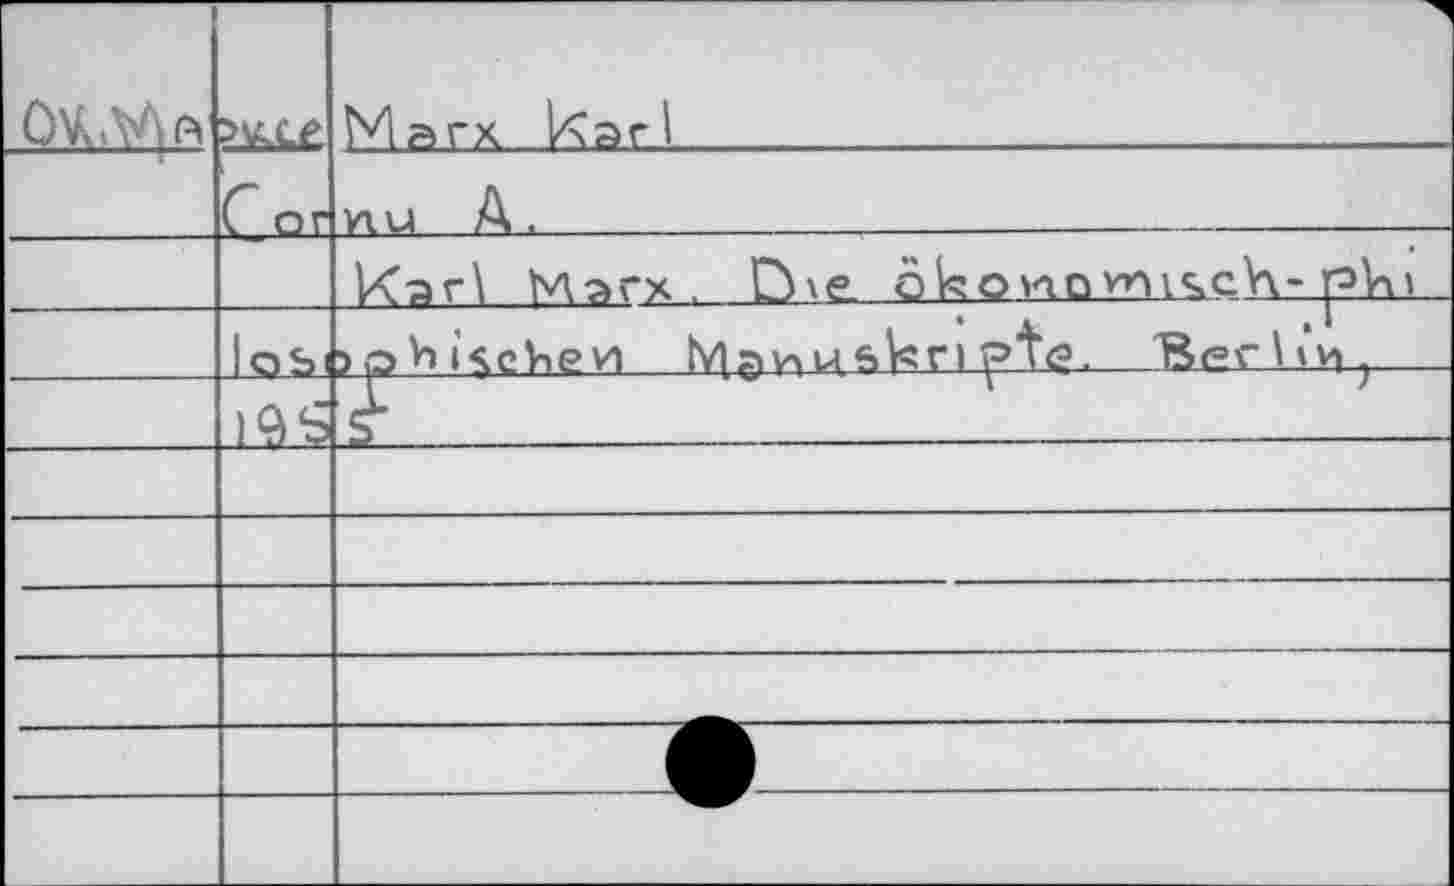 О К. Марксе Marx Karl
Cornu A.
Karl Marx. Die ökonomisch-phi
losophischen Manuskripte. Berlin,
1955